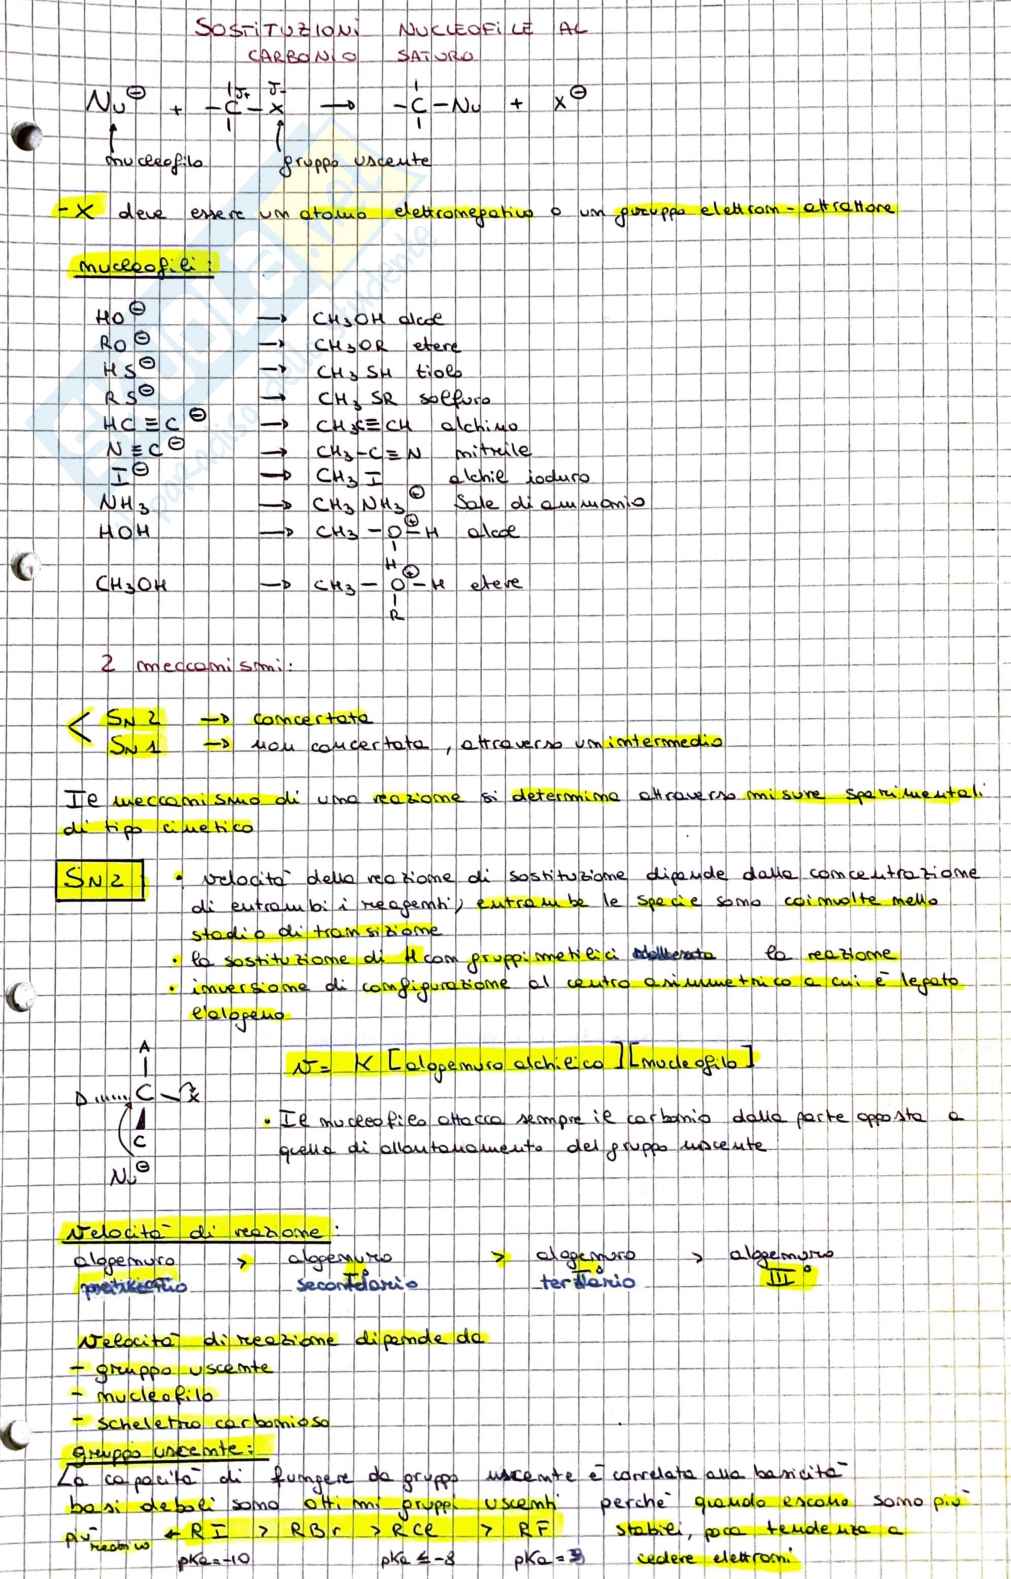 SOSTITUZIONI NUCLEOFILE AL
CARBONIO SATURO
Nu⊖ + -C-X → -C-Nu + X⊖
δ+ δ-
nucleofilo gruppo uscente
-X deve essere un atomo elettronegativo o un gruppo elettron-attrattore
nucleofili:
HO⊖ → CH3OH alcol
RO⊖ → CH3OR etere
HS⊖ → CH3SH tiolo
RS⊖ → CH3SR solfuro
HC≡C⊖ → CH3C≡CH alchino
N≡C⊖ → CH3-C≡N nitrile
I⊖ → CH3I alchil ioduro
NH3 → CH3NH3⊕ Sale di ammonio
HOH → CH3-O⊕-H alcol
H
CH3OH → CH3-O⊕-H etere
R
2 meccanismi:
< SN2 → concertata
SN1 → non concertata, attraverso un intermedio
Il meccanismo di una reazione si determina attraverso misure sperimentali
di tipo cinetico
SN2 • velocità della reazione di sostituzione dipende dalla concentrazione
di entrambi i reagenti, entrambe le specie sono coinvolte nello
stadio di transizione
• la sostituzione di H con gruppi metilici la reazione
• inversione di configurazione al centro asimmetrico a cui è legato
l'alogeno
A
D C X
C
Nu⊖
v = K [alogenuro alchilico][nucleofilo]
• Il nucleofilo attacca sempre il carbonio dalla parte opposta a
quella di allontanamento del gruppo uscente
Velocità di reazione:
alogenuro > alogenuro > alogenuro > alogenuro
secondario terziario III°
Velocità di reazione dipende da
- gruppo uscente
- nucleofilo
- scheletro carbonioso
gruppo uscente:
La capacità di fungere da gruppo uscente è correlata alla basicità
basi deboli sono ottimi gruppi uscenti perché quando escono sono più
più reattivo ← RI > RBr > RCl > RF stabili, poca tendenza a
pKa=-10 pKa ≤ -8 pKa = 3 cedere elettroni